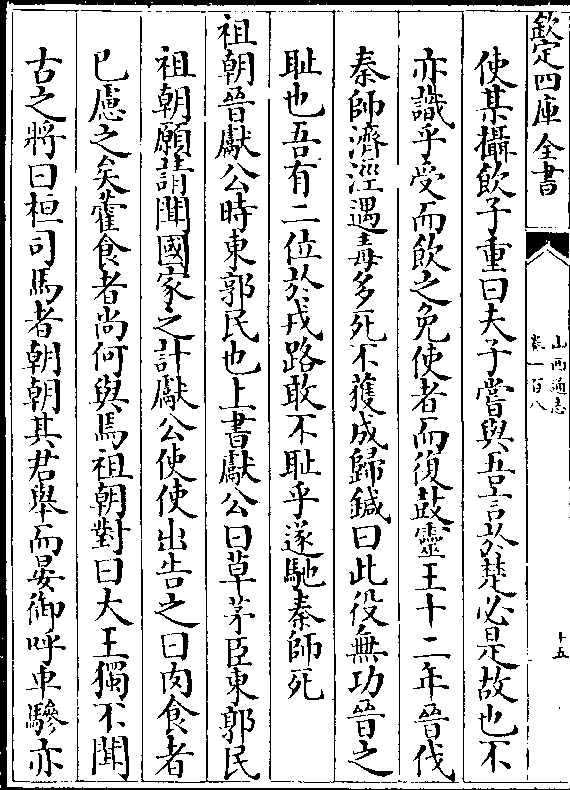 欽定四庫全書
山西通志
卷一百八
十五
使某攝飲子重曰夫子嘗與吾言於楚必是故也不
亦識乎受而飲之免使者而復鼓靈王十二年晉伐
秦師濟涇遇毒多死不獲成歸鍼曰此役無功晉之
耻也吾有二位於戎路敢不耻乎遂馳秦師死
祖朝晉獻公時東郭民也上書獻公曰草茅臣東郭民
祖朝願請聞國家之計獻公使使出告之曰肉食者
已慮之矣藿食者尚何與焉祖朝對曰大王獨不聞
古之將曰桓司馬者朝朝其君舉而晏御呼車驂亦